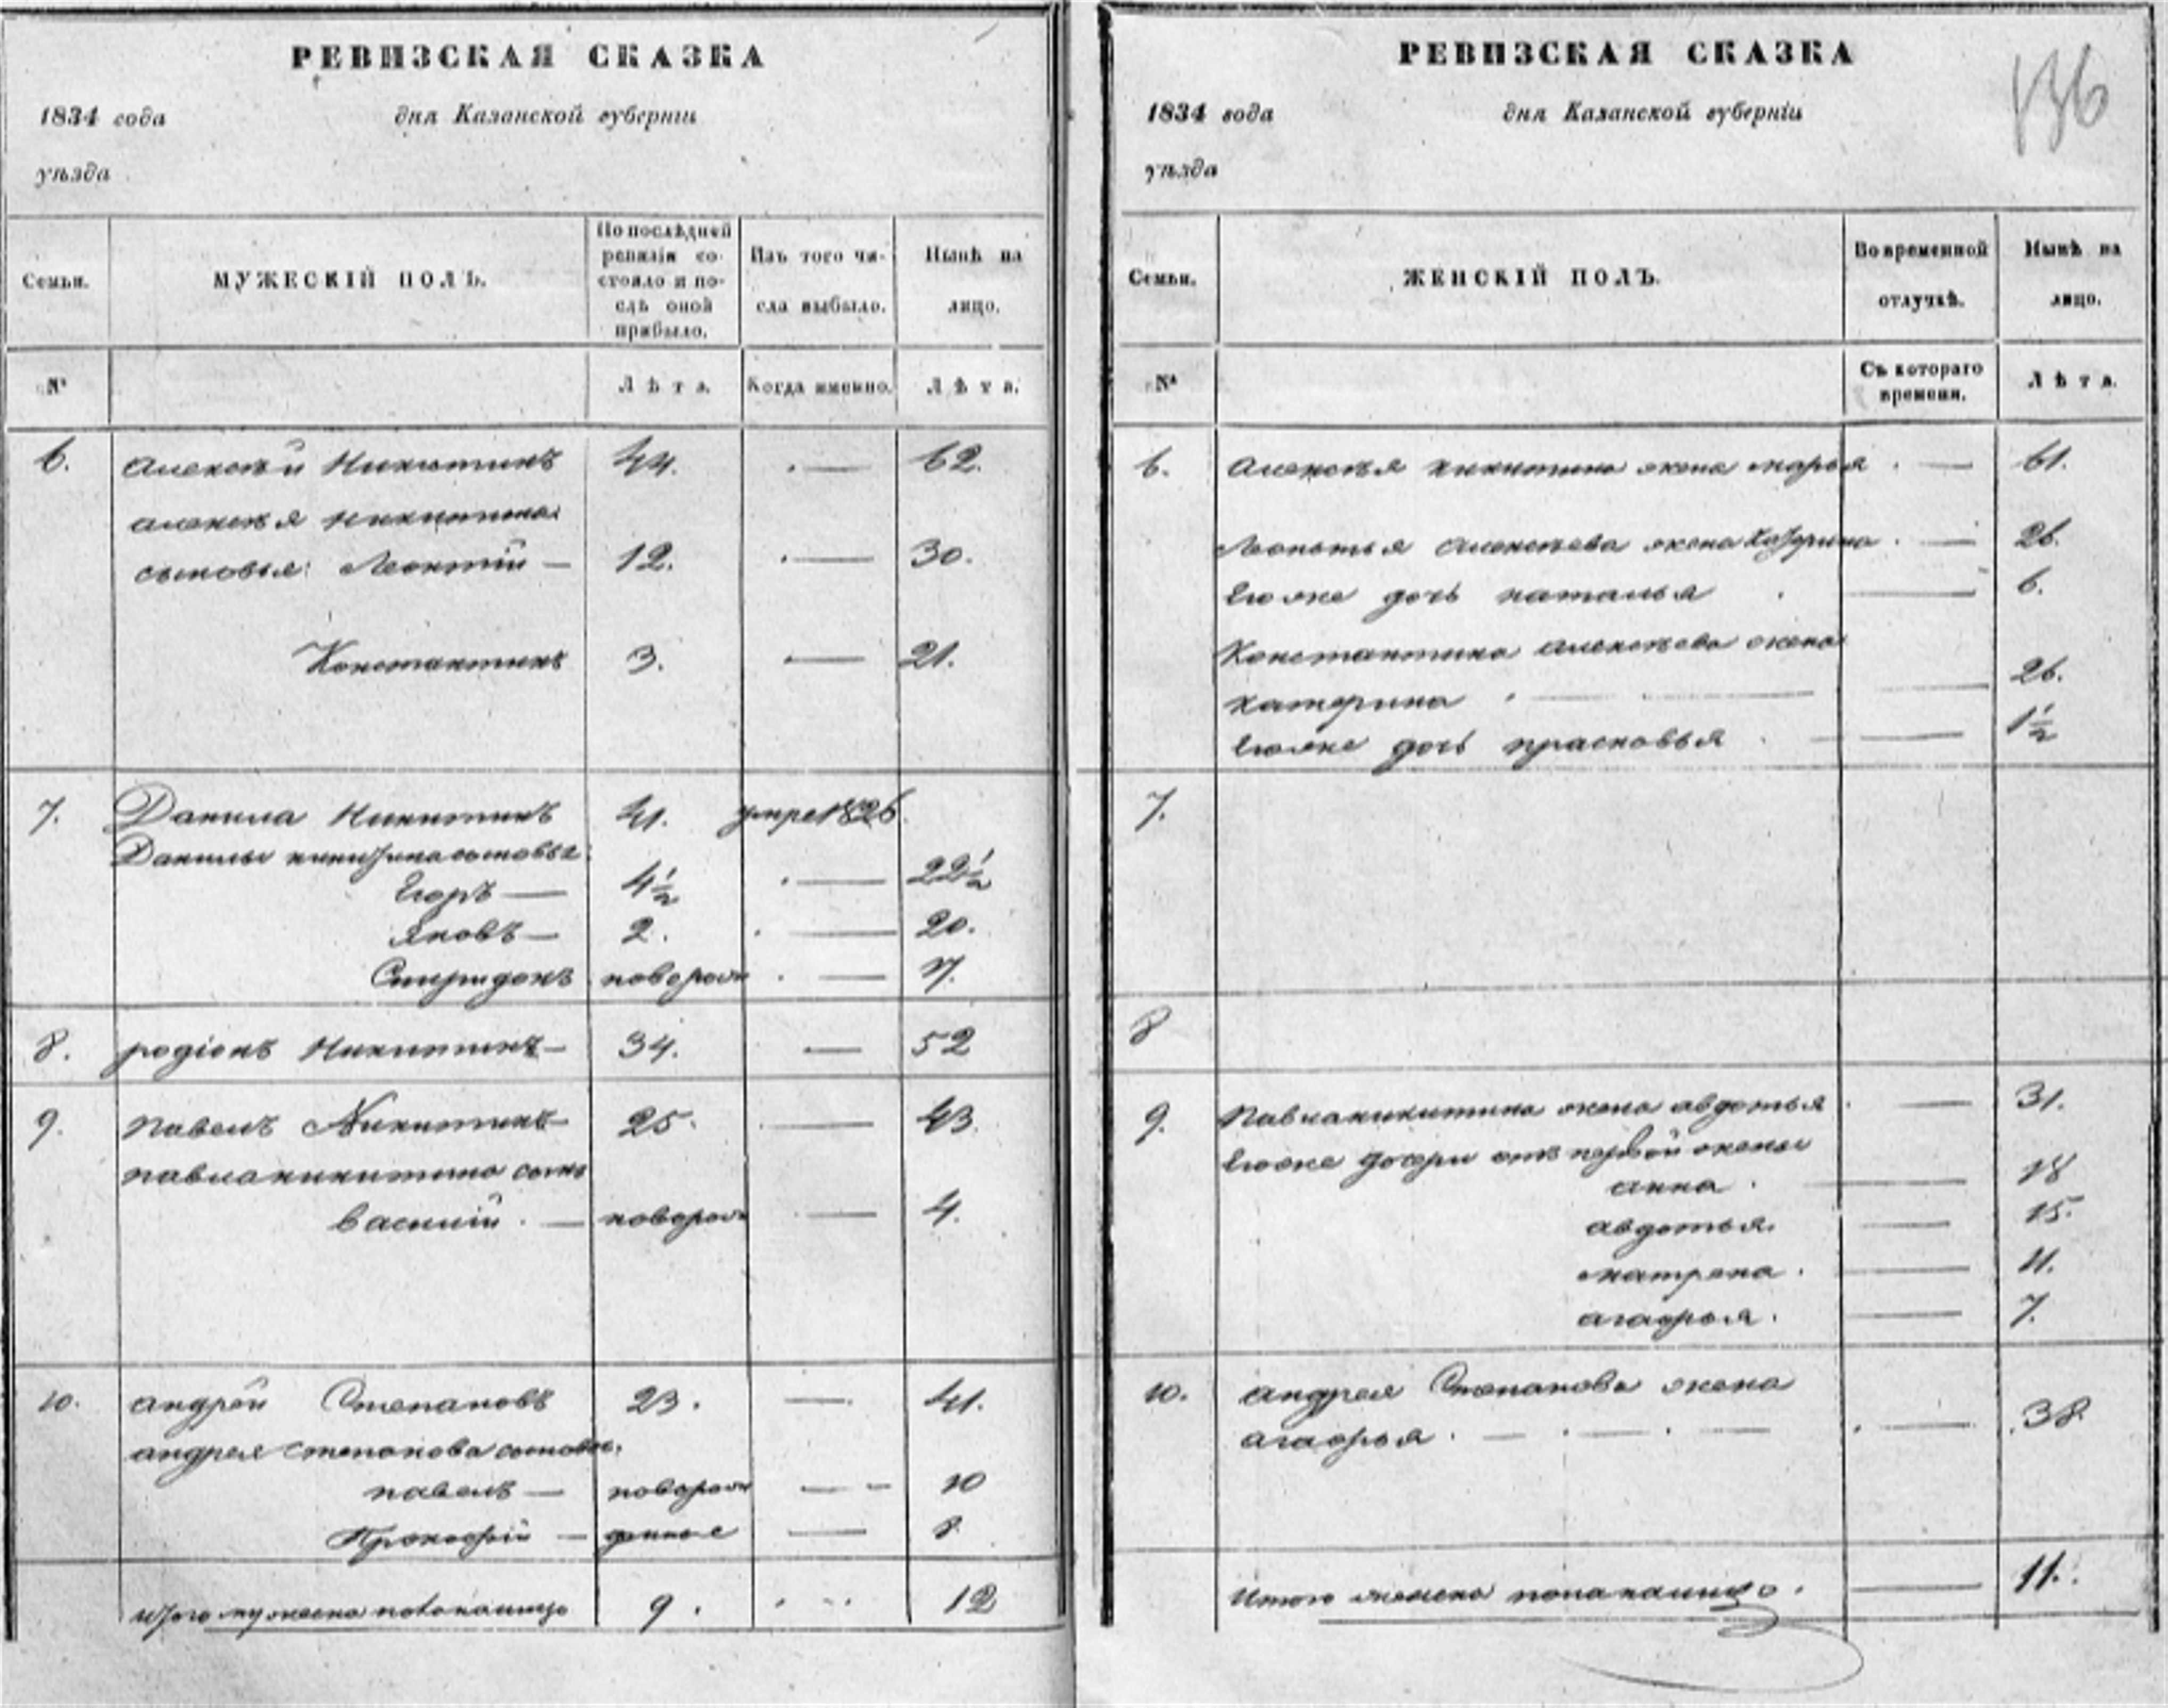 РЕВИЗСКАЯ СКАЗКА
1834 года дня Казанской губерніи
уѣзда
Семьи. МУЖЕСКІЙ ПОЛЪ. По послѣдней ревизіи состояло и послѣ оной прибыло. Изъ того числа выбыло. Нынѣ на лицо.
№ Лѣта. Когда именно. Лѣта.
6. Алексѣй Никитинъ 44. — 62.
Алексѣя Никитина
сыновья: Леонтій — 12. — 30.
Константинъ 3. — 21.
7. Данила Никитинъ 41. умре 1826.
Данилы никитина сыновья:
Егоръ — 4½ — 22½
Яковъ — 2. — 20.
Спиридонъ новорож — 17.
8. родіонъ Никитинъ — 34. — 52
9. павелъ Никитинъ — 25. — 43.
павла никитина сынъ
василій. — новорож — 4.
10. андрей Степановъ 23. — 41.
андрея степанова сыновья:
павелъ — новорож — - 10
Прокофій — денные — 8
итого мужеска пола налицо 9. 12
РЕВИЗСКАЯ СКАЗКА
136
1834 года дня Казанской губерніи
уѣзда
Семьи. ЖЕНСКІЙ ПОЛЪ. Во временной отлучкѣ. Нынѣ на лицо.
№ Съ котораго времени. Лѣта.
6. Алексѣя никитина жена марья — 61.
Леонтья Алексѣева жена Катерина — 26.
Егоже дочь наталья — 6.
Константина алексѣева жена
катерина — 26.
Егоже дочь прасковья — 1½
7.
8
9. Павла никитина жена авдотья — 31.
Егоже дочери отъ первой жены
анна. — 18
авдотья. — 15.
матрена. — 11.
агафья. — 7.
10. андрея Степанова жена
агафья. — — — — 38
Итого женска пола налицо. — 11.